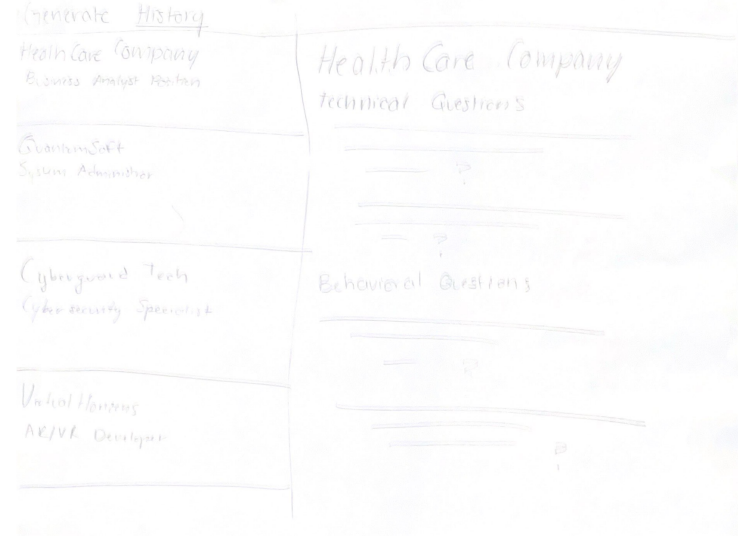 Generate History
Health Care Company
Business Analyst Position
QuantumSoft
System Administrator
Cyberguard Tech
Cybersecurity Specialist
Virtual Horizons
AR/VR Developer
Health Care Company
technical Questions
?
?
Behavioral Questions
?
?